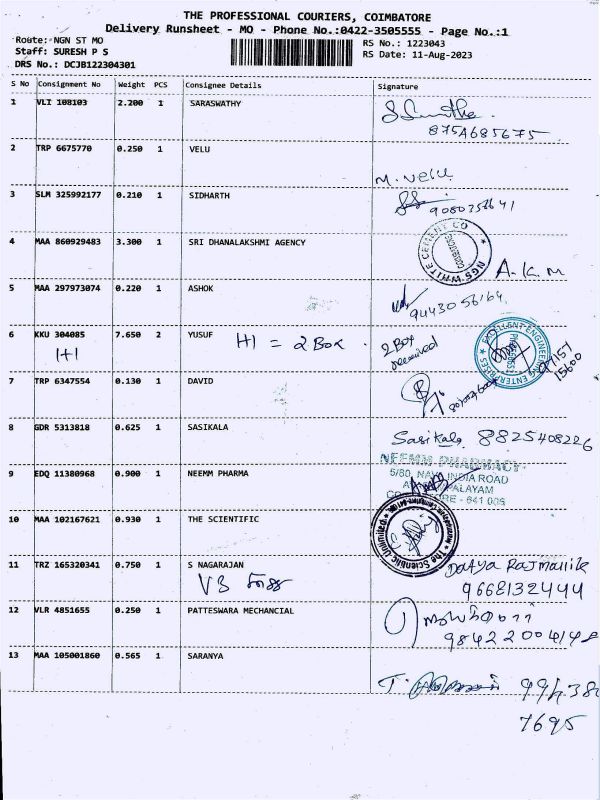 THE PROFESSIONAL COURIERS, COIMBATORE
Delivery Runsheet - MO - Phone No.:0422-3505555 - Page No.:1
Route: NGN ST MO
RS No.: 1223043
Staff: SURESH P S
RS Date: 11-Aug-2023
DRS No.: DCJB122304301
S No Consignment No Weight PCS Consignee Details Signature
1 VLI 108103 2.200 1 SARASWATHY
2 TRP 6675770 0.250 1 VELU
M. Velu
3 SLM 325992177 0.210 1 SIDHARTH
4 MAA 860929483 3.300 1 SRI DHANALAKSHMI AGENCY
NGS WHITE CEMENT CO
A.K.M
5 MAA 297973074 0.220 1 ASHOK
9443056164
6 KKU 304085 7.650 2 YUSUF
1+1
1+1 = 2 Box
2 Box
received
EXCELLENT ENGINEERING ENTERPRISES
97157
15600
7 TRP 6347554 0.130 1 DAVID
8 GDR 5313818 0.625 1 SASIKALA
Sasikala 8825408226
9 EDQ 11380968 0.900 1 NEEMM PHARMA
NEEMM PHARMACY
5/80, NAVA INDIA ROAD
PALAYAM
641 006
10 MAA 102167621 0.930 1 THE SCIENTIFIC
The Scientific Unlimited
11 TRZ 165320341 0.750 1 S NAGARAJAN
Rajmallik
9668132444
12 VLR 4851655 0.250 1 PATTESWARA MECHANCIAL
13 MAA 105001860 0.565 1 SARANYA
7695